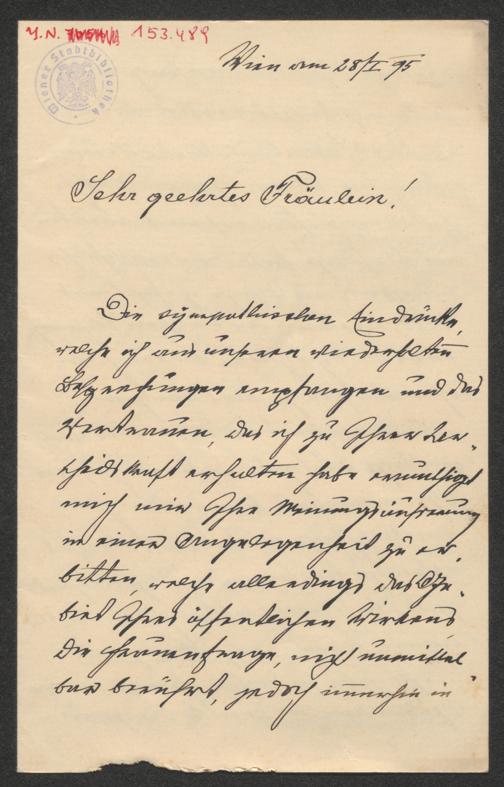 J. N. 153.489
Wiener Stadtbibliothek
Wien am 28/I 95
Sehr geehrtes Fräulein!
Die sympathischen Eindrücke,
welche ich aus unseren wiederholten
Besprechungen empfangen und das
Vertrauen, das ich zu Ihrer Ur-
theilskraft erhalten habe ermuthigt
mich mir Ihre Meinungsäußerung
in einer Angelegenheit zu er-
bitten, welche allerdings das Ge-
biet Ihres öffentlichen Wirkens
die Frauenfrage, nicht unmittel
bar berührt, jedoch immerhin in